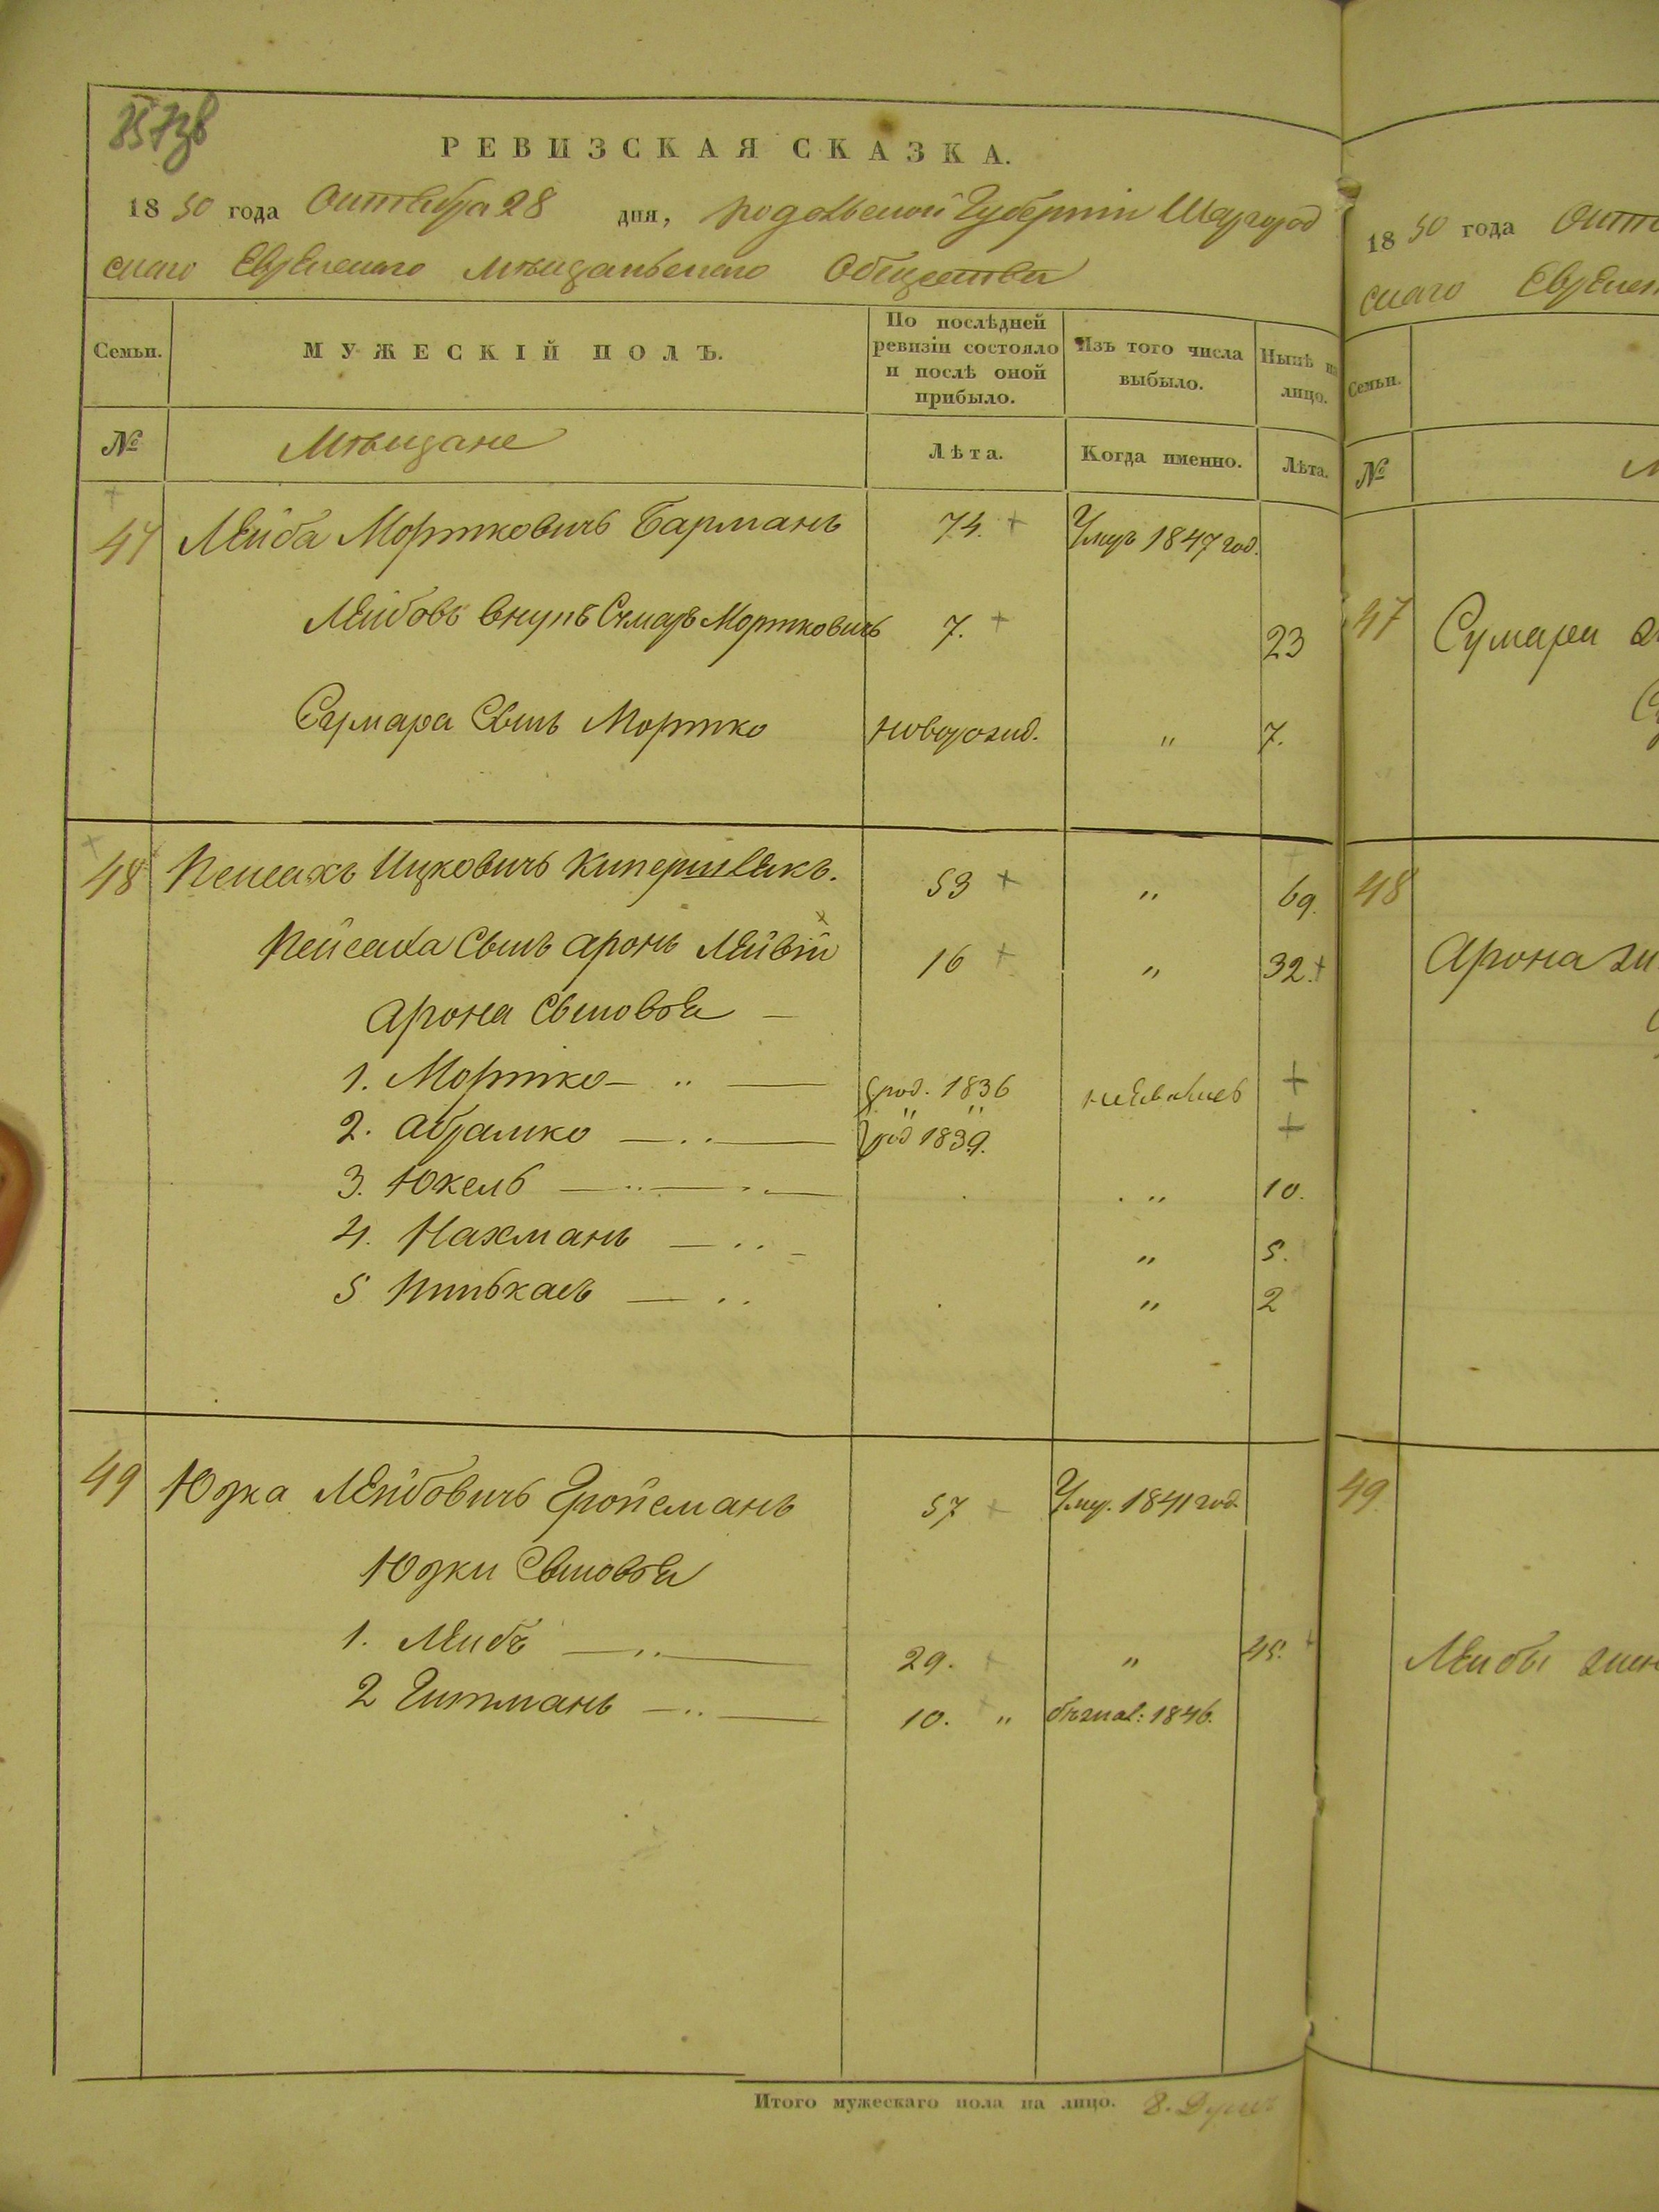 РЕВИЗСКАЯ СКАЗКА.
1850 года Октября 28 дня, Подольской Губерніи Шаргород
скаго Еврейскаго мѣщанскаго Общества
Семьи. МУЖЕСКІЙ ПОЛЪ. По послѣдней ревизіи состояло и послѣ оной прибыло. Изъ того числа выбыло. Нынѣ на лицо.
№ Мѣщане Лѣта. Когда именно. Лѣта.
47 Лейба Мортковичъ Барманъ 74. Умеръ 1847 год.
Лейбовъ внукъ Сумаръ Мортковичъ 7. 23
Сумара Сынъ Мортко новорожд. " 7.
48 Пейсахъ Ицковичъ 53 " 69.
Пейсаха Сынъ Аронъ Лейвій 16 " 32.
Арона Сыновья —
1. Мортко — " — род. 1836
2. Абрамко — " — род 1839.
3. Юкель — " — " — . " 10.
4. Нахманъ — " " 5.
5 Пинькасъ — " " 2
49 Юдка Лейбовичъ Гройсманъ 57 Умер. 1841 год.
Юдки Сыновья
1. Лейбъ — " — 29. " 45.
2 Гитманъ — " — 10. " бѣжал: 1846.
Итого мужескаго пола на лицо. 8. Душъ
1850 года
скаго
Семьи.
№
47 Сумара
48
Арона
49
Лейбы